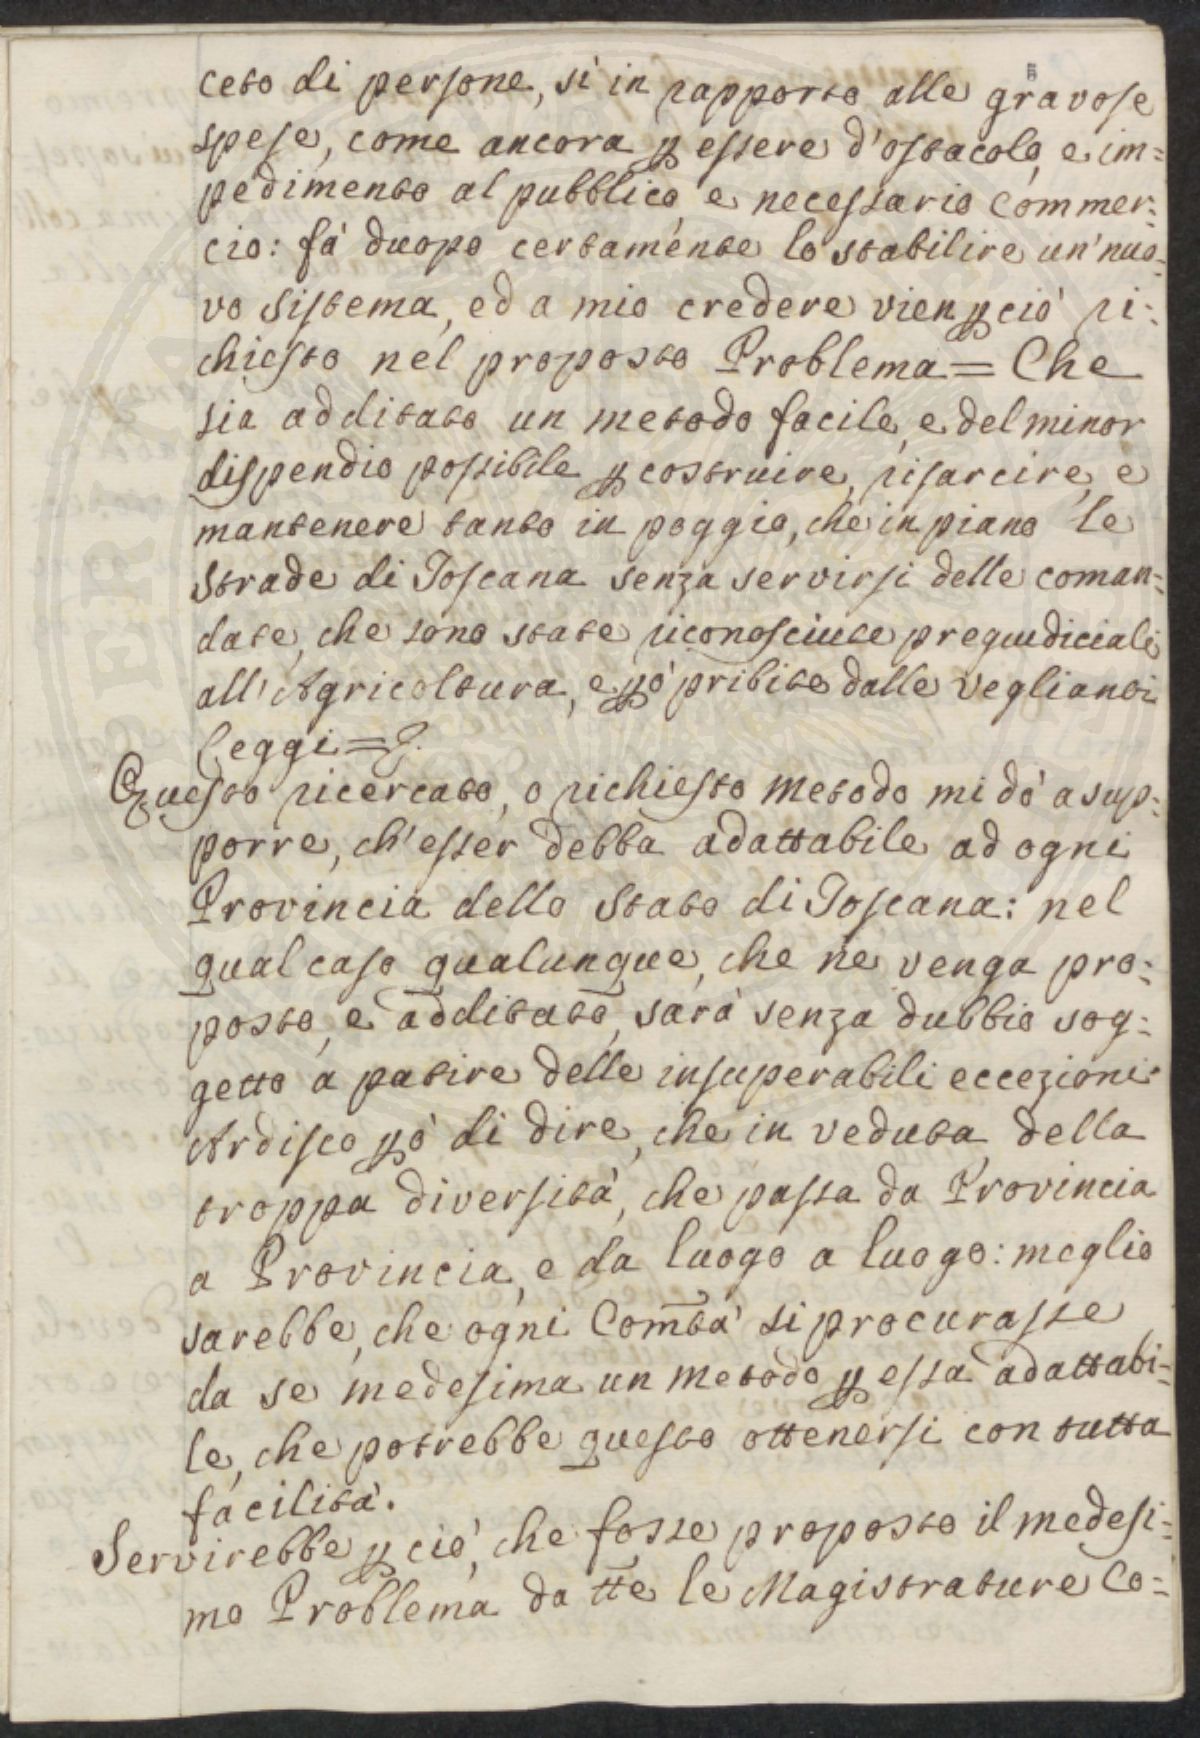 ceto di persone, sì in rapporto alle gravose
spese, come ancora ꝑ essere d'ostacolo, e im=
pedimento al pubblico, e necessario Commer=
cio: fà duopo certamente lo stabilire un'nuo=
vo Sistema, ed a mio credere vien ꝑciò ri=
chiesto nel proposto Problema = Che
sia additato un metodo facile, e del minor
dispendio possibile ꝑ costruire, risarcire, e
mantenere tanto in poggio, che in piano le
Strade di Toscana senza servirsi delle coman=
date, che sono state riconosciute pregiudiciali
all'Agricoltura, e ꝑò pribite dalle veglianti
leggi =
Questo ricercato, o richiesto metodo mi dà a sup=
porre, ch'esser debba adattabile ad ogni
Provincia dello Stato di Toscana: nel
qual caso qualunque, che ne venga pro=
posto, e additato, sarà senza dubbio sog=
getto a patire delle insuperabili eccezioni.
Ardisco ꝑò di dire, che in veduta della
troppa diversità, che passa da Provincia
a Provincia, e da luogo a luogo: meglio
sarebbe, che ogni Com̄tà si procurasse
da se medesima un metodo ꝑ essa adattabi=
le, che potrebbe questo ottenersi con tutta
facilità.
Servirebbe ꝑ ciò, che fosse proposto il medesi=
mo Problema da tt̄e le Magistrature Co=